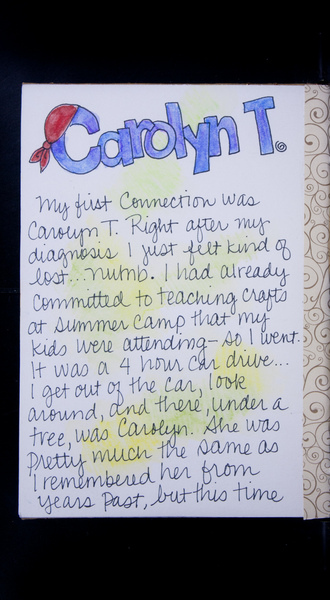 Carolyn T.
My first Connection was
Carolyn T. Right after my
diagnosis I just felt kind of
lost...numb. I had already
committed to teaching crafts
at summer camp that my
kids were attending - so I went.
It was a 4 hour car drive...
I get out of the car, look
around, and there, under a
tree, was Carolyn. She was
pretty much the same as
I remembered her from
years past, but this time